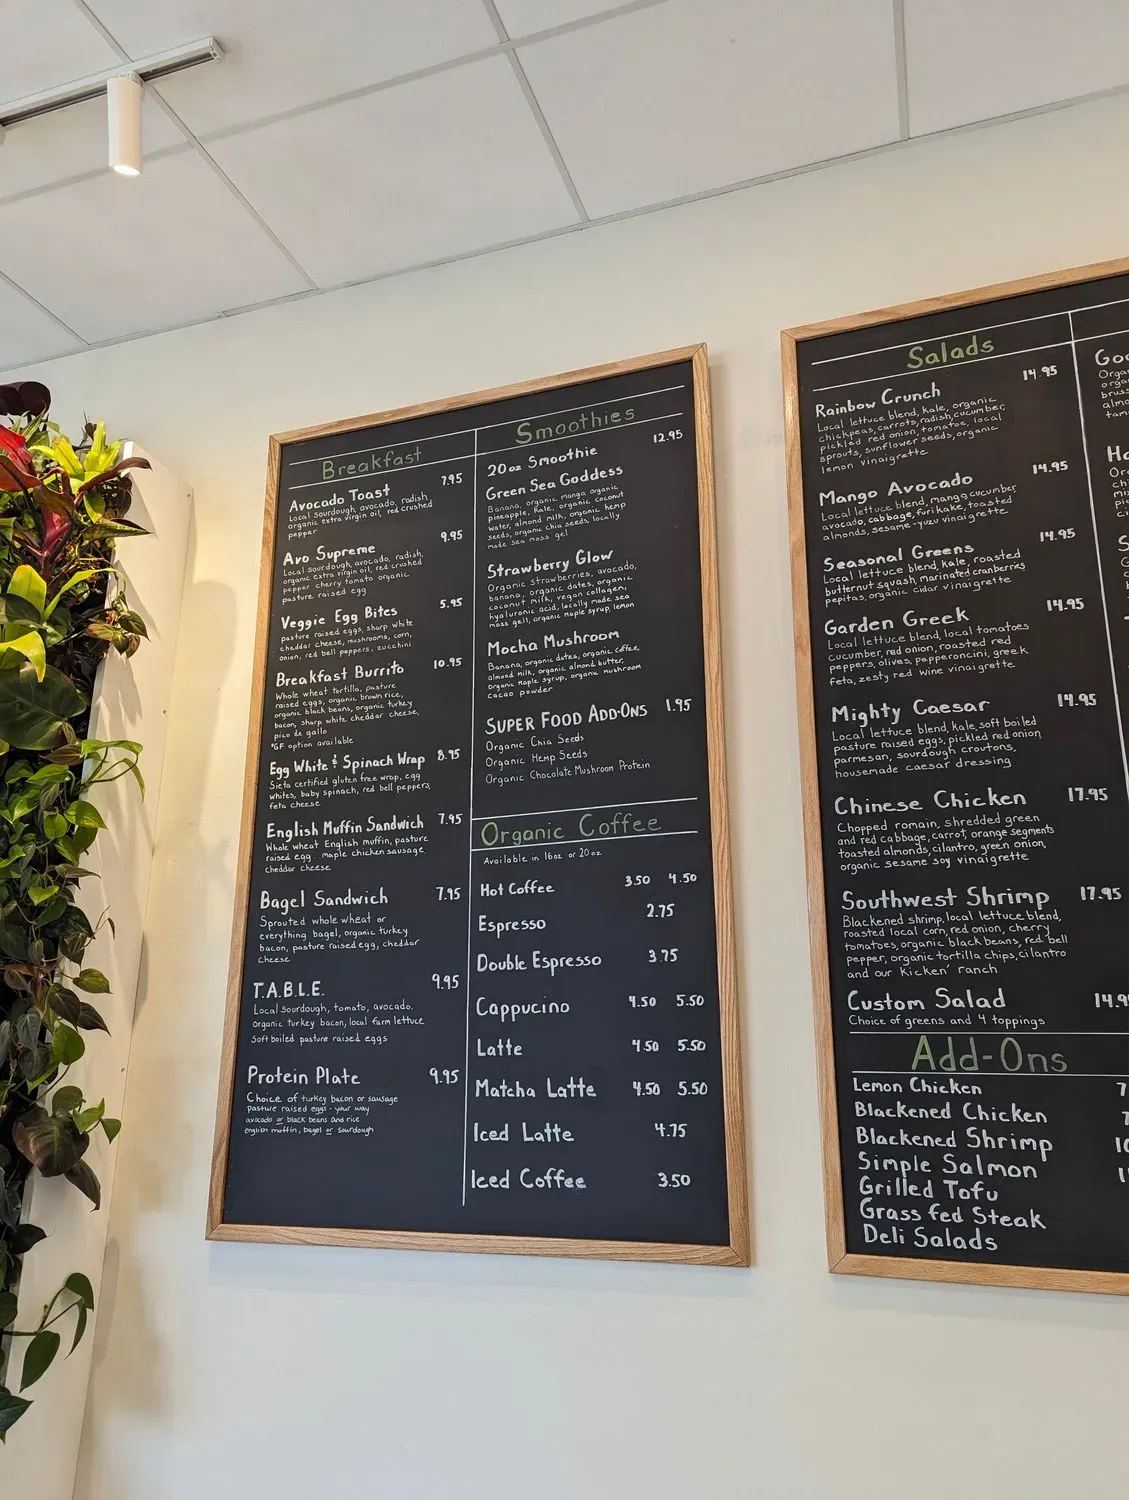 Breakfast
Avocado Toast 7.95
Local sourdough, avocado, radish,
organic extra virgin oil, red crushed
pepper
Avo Supreme 9.95
Local sourdough, avocado, radish,
organic extra virgin oil, red crushed
pepper cherry tomato organic
pasture raised egg
Veggie Egg Bites 5.95
pasture raised eggs, sharp white
cheddar cheese, mushrooms, corn,
onion, red bell peppers, zucchini
Breakfast Burrito 10.95
Whole wheat tortilla, pasture
raised eggs, organic brown rice,
organic black beans, organic turkey
bacon, sharp white cheddar cheese,
pico de gallo
*GF option available
Egg White & Spinach Wrap 8.95
Sieta certified gluten free wrap, egg
whites, baby spinach, red bell peppers,
feta cheese
English Muffin Sandwich 7.95
Whole wheat English muffin, pasture
raised egg, maple chicken sausage,
cheddar cheese
Bagel Sandwich 7.95
Sprouted whole wheat or
everything bagel, organic turkey
bacon, pasture raised egg, cheddar
cheese
T.A.B.L.E. 9.95
Local sourdough, tomato, avocado,
organic turkey bacon, local farm lettuce
Soft boiled pasture raised eggs
Protein Plate 9.95
Choice of turkey bacon or sausage
Pasture raised eggs - your way
avocado or black beans and rice
english muffin, bagel or sourdough
Smoothies
20oz Smoothie 12.95
Green Sea Goddess
Banana, organic mango, organic
pineapple, Kale, organic coconut
water, almond milk, organic hemp
seeds, organic chia seeds, locally
made sea moss gel
Strawberry Glow
Organic strawberries, avocado,
banana, organic dates, organic
coconut milk, vegan collagen,
hyaluronic acid, locally made sea
moss gell, organic maple syrup, lemon
Mocha Mushroom
Banana, organic dates, organic coffee,
almond milk, organic almond butter,
organic maple syrup, organic mushroom
cacao powder
SUPER FOOD ADD-ONS 1.95
Organic Chia Seeds
Organic Hemp Seeds
Organic Chocolate Mushroom Protein
Organic Coffee
Available in 16oz or 20oz
Hot Coffee 3.50 4.50
Espresso 2.75
Double Espresso 3.75
Cappucino 4.50 5.50
Latte 4.50 5.50
Matcha Latte 4.50 5.50
Iced Latte 4.75
Iced Coffee 3.50
Salads
Rainbow Crunch 14.95
Local lettuce blend, kale, organic
chickpeas, carrots, radish, cucumber,
pickled red onion, tomatoe, local
sprouts, sunflower seeds, organic
lemon vinaigrette
Mango Avocado 14.95
Local lettuce blend, mango, cucumber,
avocado, cabbage, furikake, toasted
almonds, sesame-yuzu vinaigrette
Seasonal Greens 14.95
Local lettuce blend, kale, roasted
butternut squash, marinated cranberries
pepitas, organic cidar vinaigrette
Garden Greek 14.95
Local lettuce blend, local tomatoes
cucumber, red onion, roasted red
peppers, olives, pepperoncini, greek
feta, zesty red wine vinaigrette
Mighty Caesar 14.95
Local lettuce blend, kale, soft boiled
pasture raised eggs, pickled red onion,
parmesan, sourdough croutons,
housemade caesar dressing
Chinese Chicken 17.95
Chopped romain, shredded green
and red cabbage, carrot, orange segments
toasted almonds, cilantro, green onion,
organic sesame soy vinaigrette
Southwest Shrimp 17.95
Blackened shrimp, local lettuce blend,
roasted local corn, red onion, cherry
tomatoes, organic black beans, red bell
pepper, organic tortilla chips, cilantro
and our Kicken' ranch
Custom Salad 14.9
Choice of greens and 4 toppings
Add-Ons
Lemon Chicken
Blackened Chicken
Blackened Shrimp
Simple Salmon
Grilled Tofu
Grass fed Steak
Deli Salads